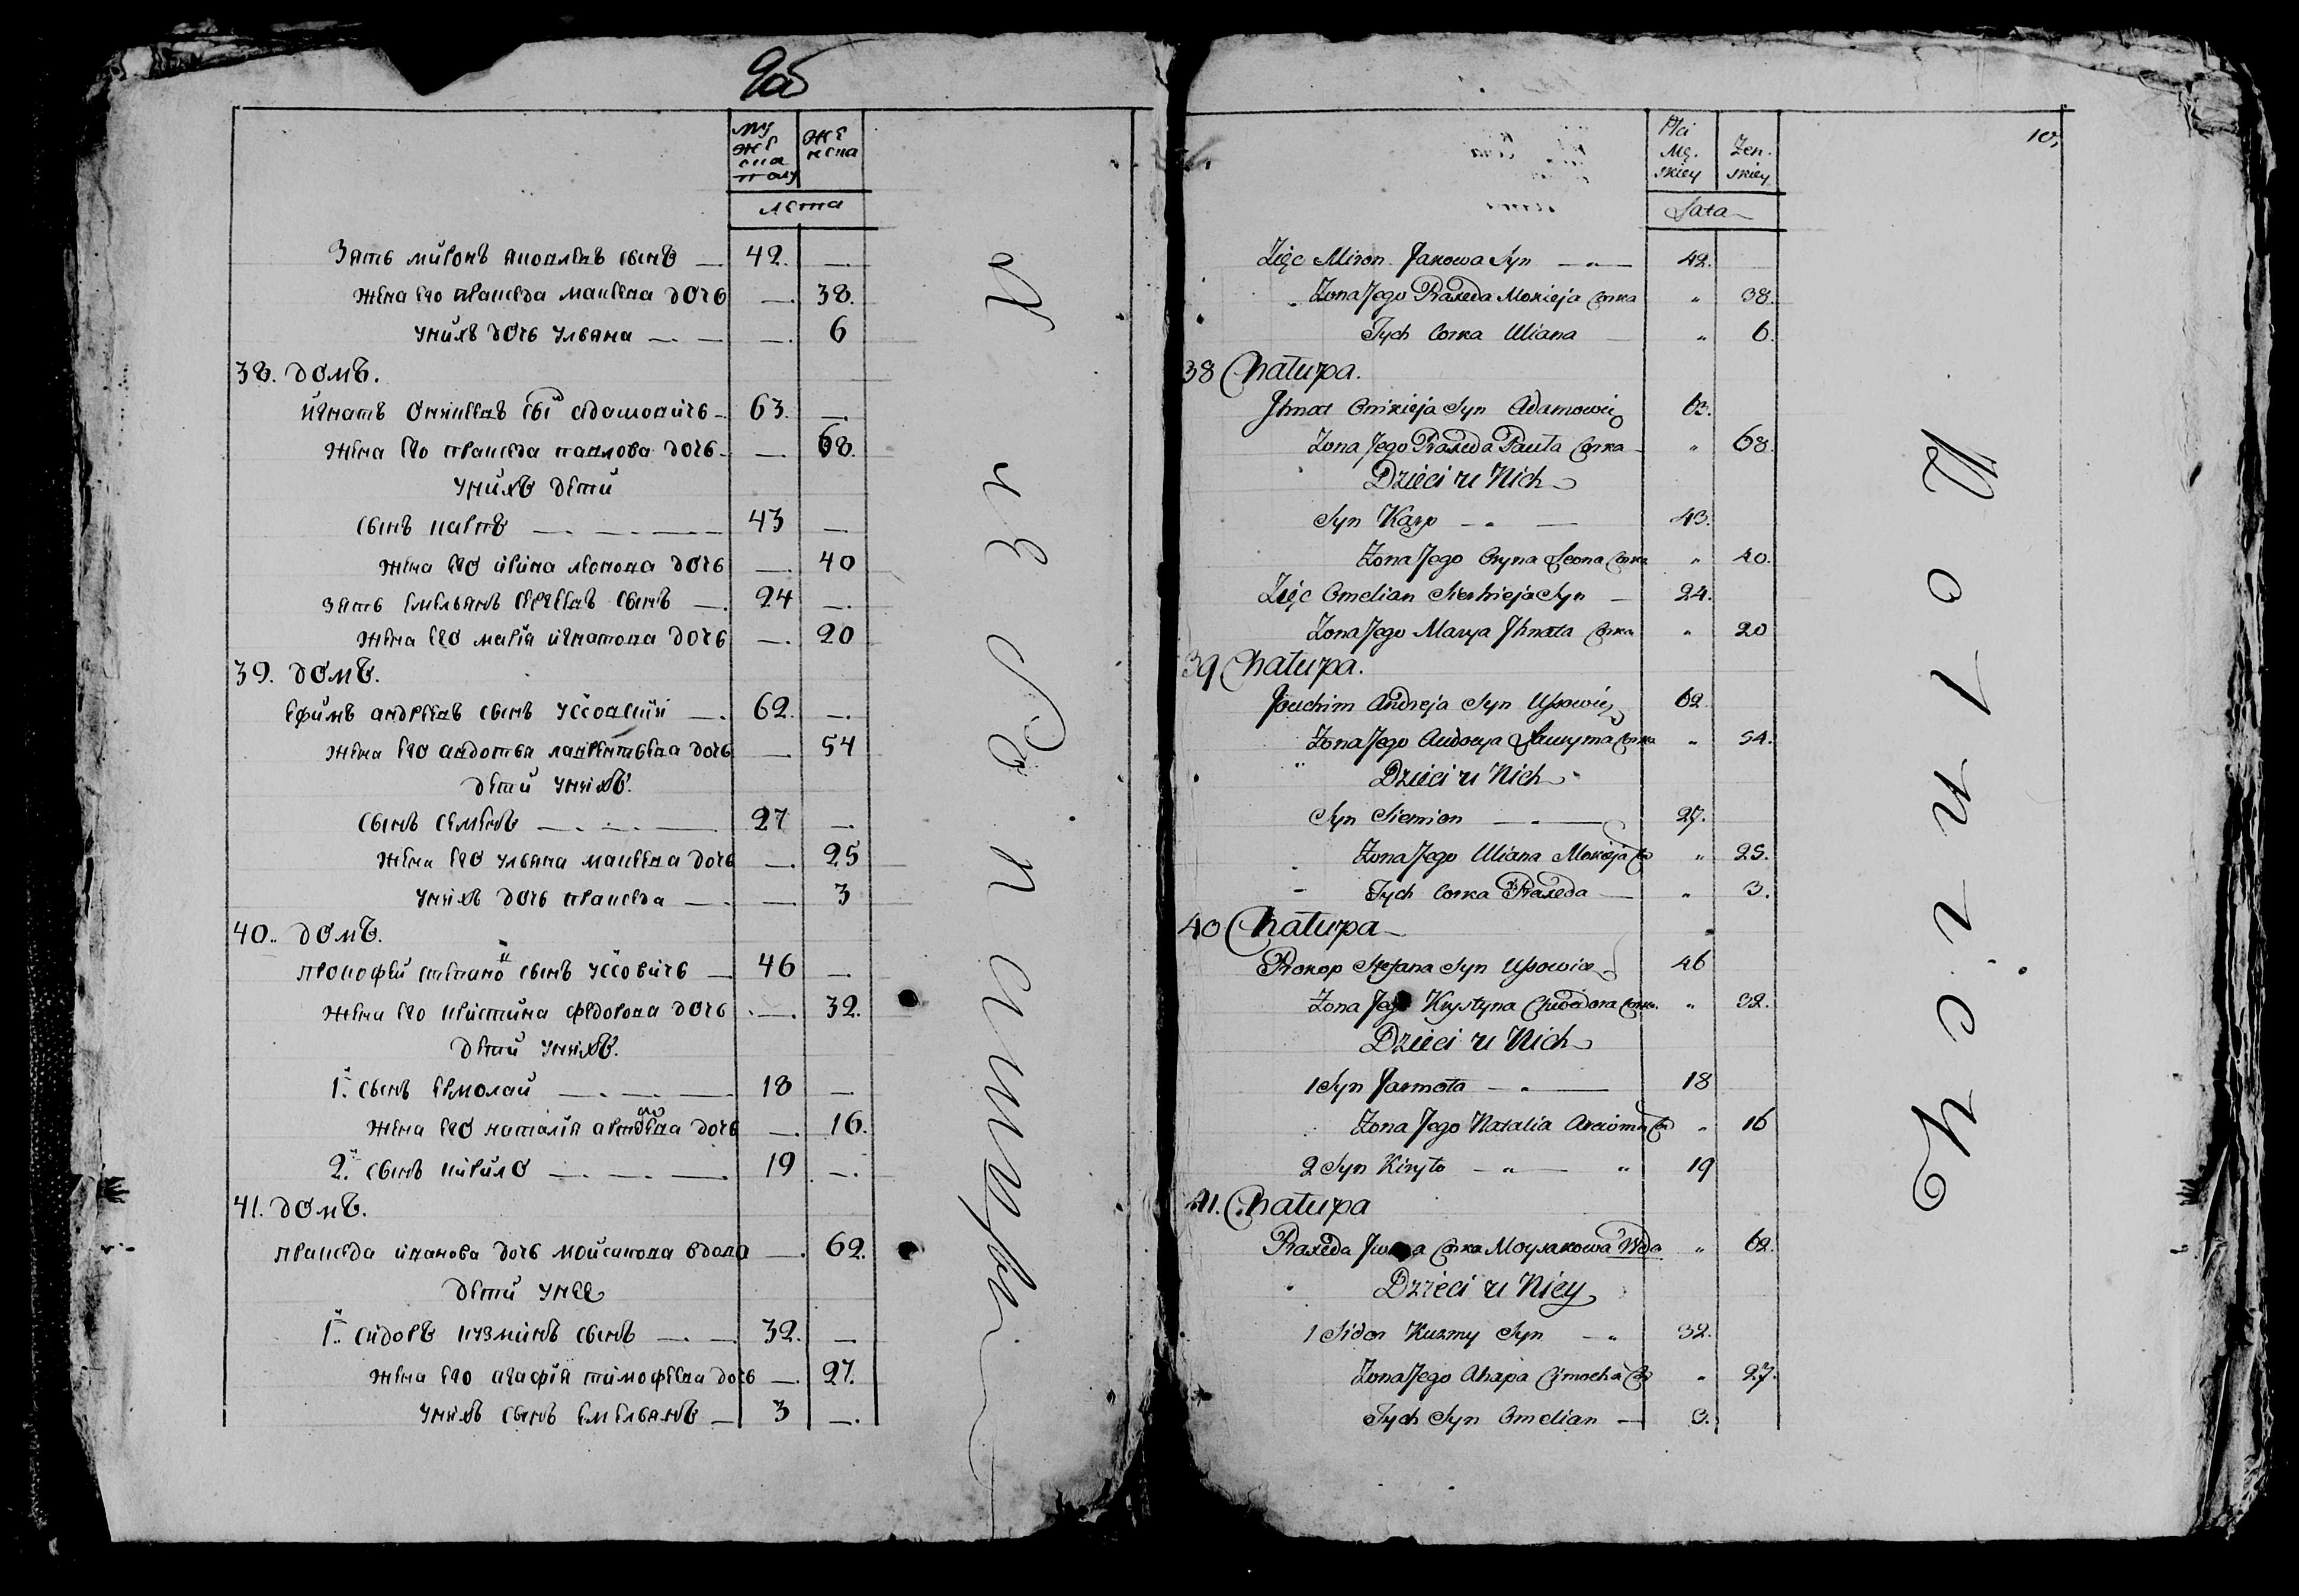 му
же
ска
полу
же
нска
лета
Зять миронъ яковлевъ сынъ — 42. —
жена его пракседа макеева дочь — 38.
унихъ дочь ульяна — — — 6
38. домъ.
игнатъ оникеевъ сы адамовичь — 63. —
жена его пракседа павлова дочь — — 68.
унихъ дети
сынъ карпъ — — — 43 —
жена его ирина леонова дочь — 40
зять емельянъ сергеевъ сынъ — 24 —
жена его марія игнатова дочь — 20
39. домъ.
ефимъ андреевъ сынъ уссовскій — 62. —
жена его авдотья лаврентьева дочь — 54
дети унихъ.
сынъ семенъ — — — 27 —
жена его ульяна макеева дочь — 25
унихъ дочь пракседа — — 3
40. домъ.
прокофей степано сынъ уссовичь — 46 —
жена его кристина федорова дочь — 32.
дети унихъ.
1. сынъ ермолай — — — 18 —
жена его наталія артова дочь — 16.
2. сынъ кирило — — — 19 —
41. домъ.
пракседа иванова дочь мойсакова вдова — 62.
дети унее
1. сидоръ кузминъ сынъ — — 32. —
жена его агафія тимофеева дочь — 27.
унихъ сынъ емельянъ — 3 —
Płci
Mę.
skiey
Żen.
skiey
Lata
10,
Zięc Miron Jakowa Syn — „ — 42.
Żona Jego Praxeda Mokieja Corka „ 38.
Tych Corka Uliana — „ 6.
38 Chałupa.
Jhnat Onikieja Syn Adamowicz 63.
Żona Jego Praxeda Pauła Corka „ 68.
Dzieci u Nich
Syn Karp — „ — 43.
Żona Jego Oryna Leona Corka „ 40.
Zięc Omelian Sierhieja Syn — 24.
Żona Jego Marya Jhnata Corka „ 20
39 Chałupa.
Joachim Andreja Syn Ussowicz 62
Żona Jego Audocya Ławryna Corka „ 54.
Dzieci u Nich
Syn Siemion — „ — 27.
Żona Jego Uliana Mokieja Co „ 25.
Tych Corka Praxeda — „ 3.
40 Chałupa
Prokop Stefana Syn Ussowicz 46
Żona Jego Krystyna Chwedora Corka „ 32.
Dzieci u Nich
1 Syn Jarmoła — „ — 18
Żona Jego Natalia Arcioma Co „ 16
2 Syn Kiryło — „ — „ 19
41. Chałupa
Praxeda Jwana Corka Moysakowa Wda „ 62.
Dzieci u Niey
1 Sidor Kuzmy Syn — „ 32.
Żona Jego Ahapa Cimocha Co „ 27.
Tych Syn Omelian — 3.